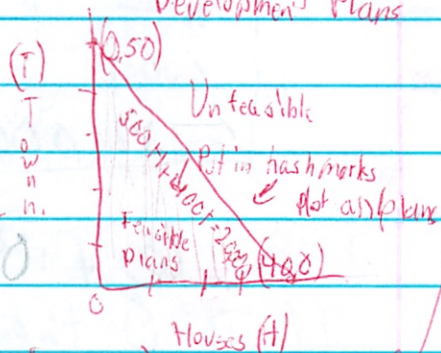 Development Plans
(T)
Town
(0,50)
Unfeasible
Put in hashmarks
Not all plans
Feasible
Plans
(40,0)
0
Houses (H)